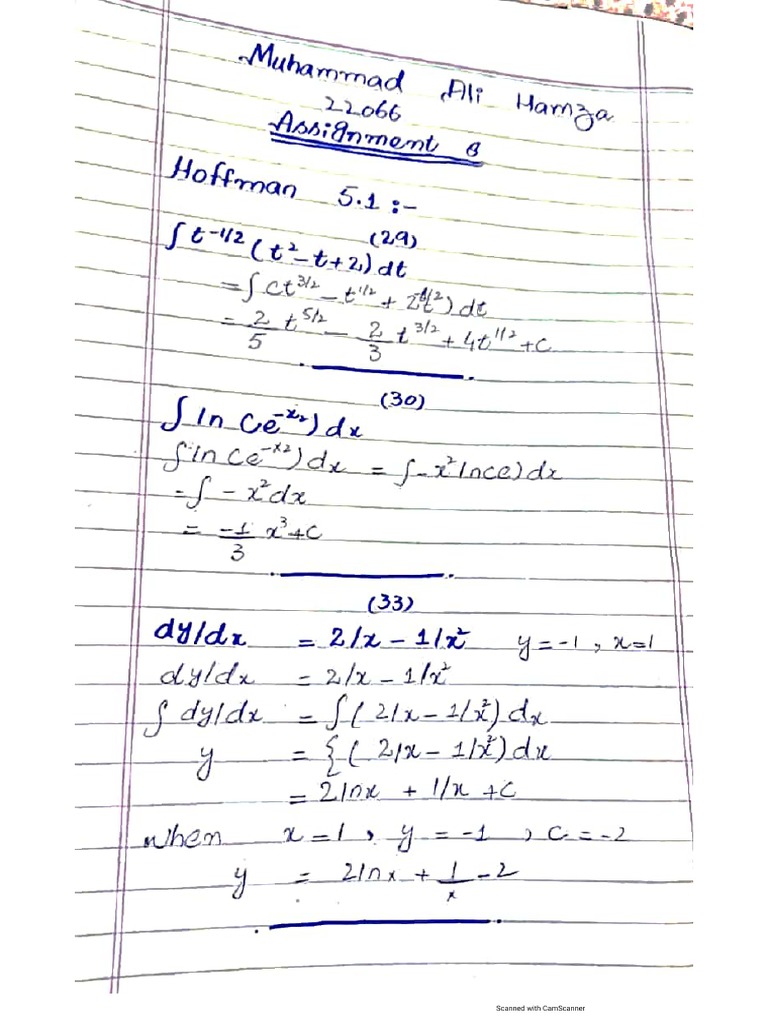 Muhammad Ali Hamza
22066
Assignment 6
Hoffman 5.1 :-
(29)
∫ t^-1/2 (t² - t + 2) dt
= ∫ (t^3/2 - t^1/2 + 2t^-1/2) dt
= 2/5 t^5/2 - 2/3 t^3/2 + 4t^1/2 + C
(30)
∫ ln (e^-x²) dx
∫ ln (e^-x²) dx = ∫ -x² ln(e) dx
= ∫ - x² dx
= -1/3 x³ + C
(33)
dy/dx = 2/x - 1/x² y = -1 , x = 1
dy/dx = 2/x - 1/x²
∫ dy/dx = ∫ ( 2/x - 1/x²) dx
y = { ( 2/x - 1/x²) dx
= 2lnx + 1/x + C
when x = 1 , y = -1 , C = -2
y = 2lnx + 1/x - 2
Scanned with CamScanner